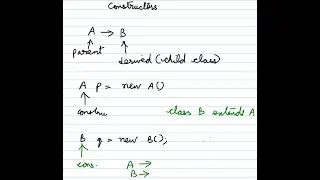 Constructors
A → B
parent
derived (child class)
A p = new A()
constru
class B extends A
B q = new B();
cons.
A →
B →